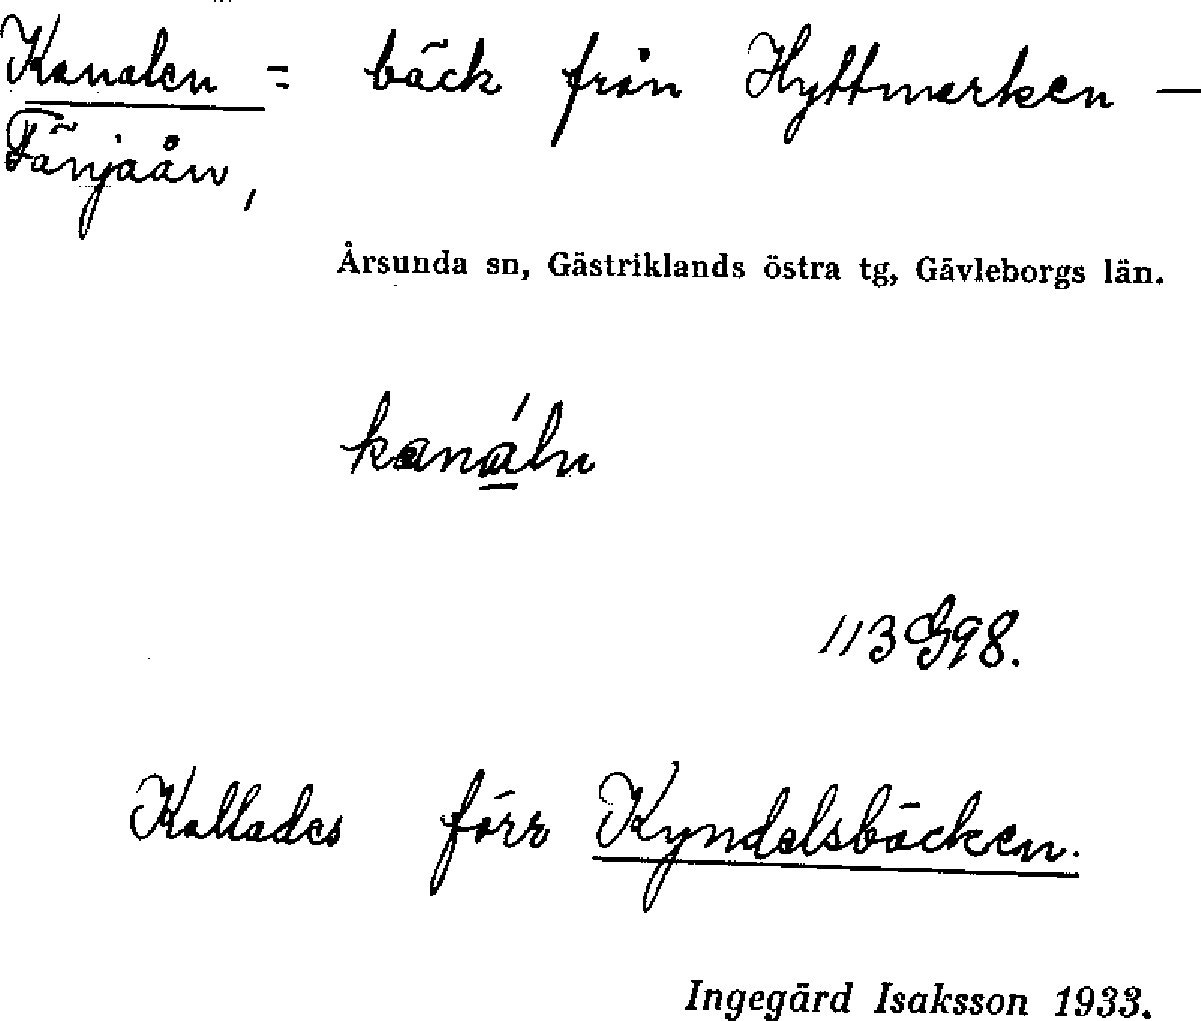 Kanalen = bäck från Hyttmarken —
Fänjaån,
Årsunda sn, Gästriklands östra tg, Gävleborgs län.
kanáln
113 G98.
Kallades förr Kyndelsbäcken.
Ingegärd Isaksson 1933.